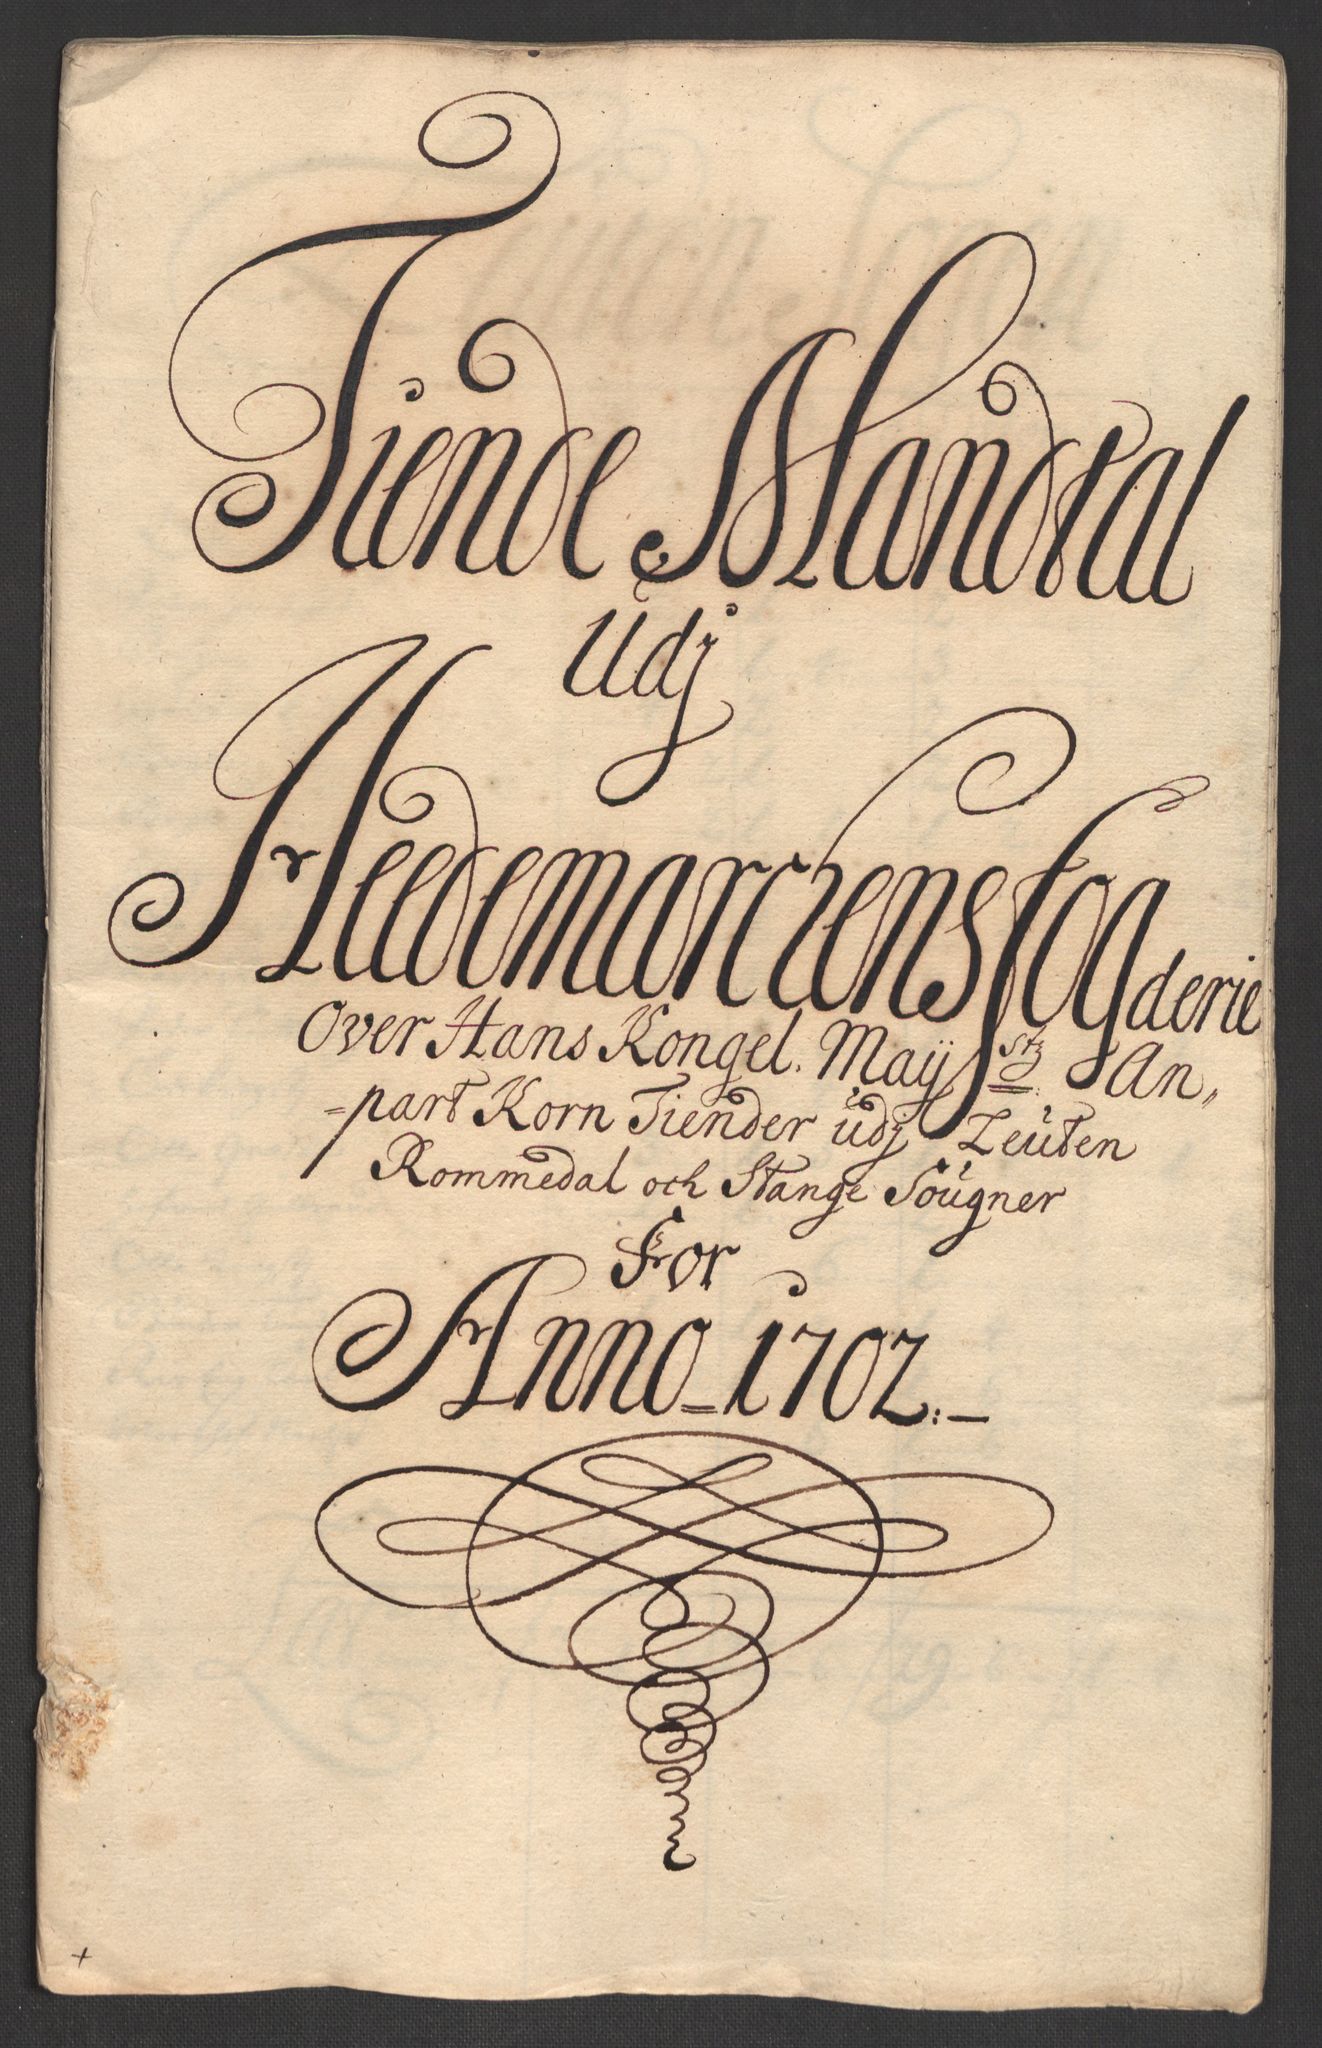 Tiende Mandtal
Udj
Hedemarchens fogderie
Over Hans Kongel. Mayстz An„
=part Korn Tiender udj Leuten
Rommedal och Stange Sougner
For
Anno = 1702:—